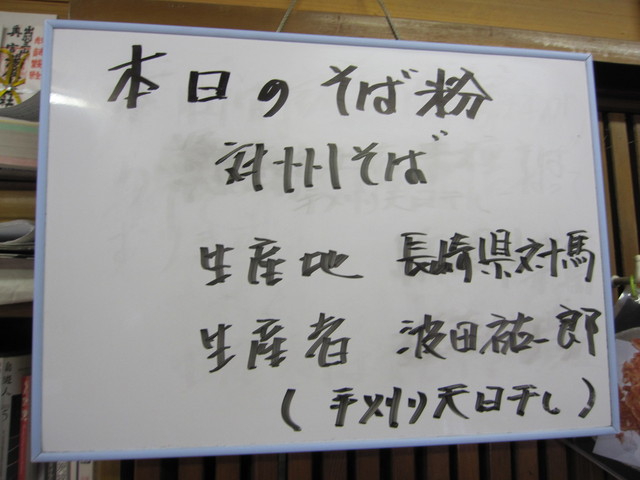 本日のそば粉
対州そば
生産地 長崎県対馬
生産者 波田祐一郎
(手刈り天日干し)